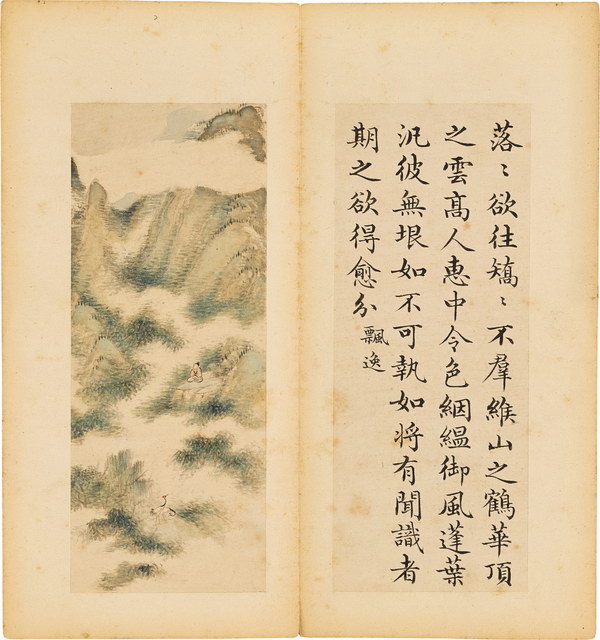 落〻欲往矯〻不羣緱山之鶴華頂
之雲髙人惠中令色絪縕御風蓬葉
汎彼無垠如不可執如将有聞識者
期之欲得愈分 飄逸